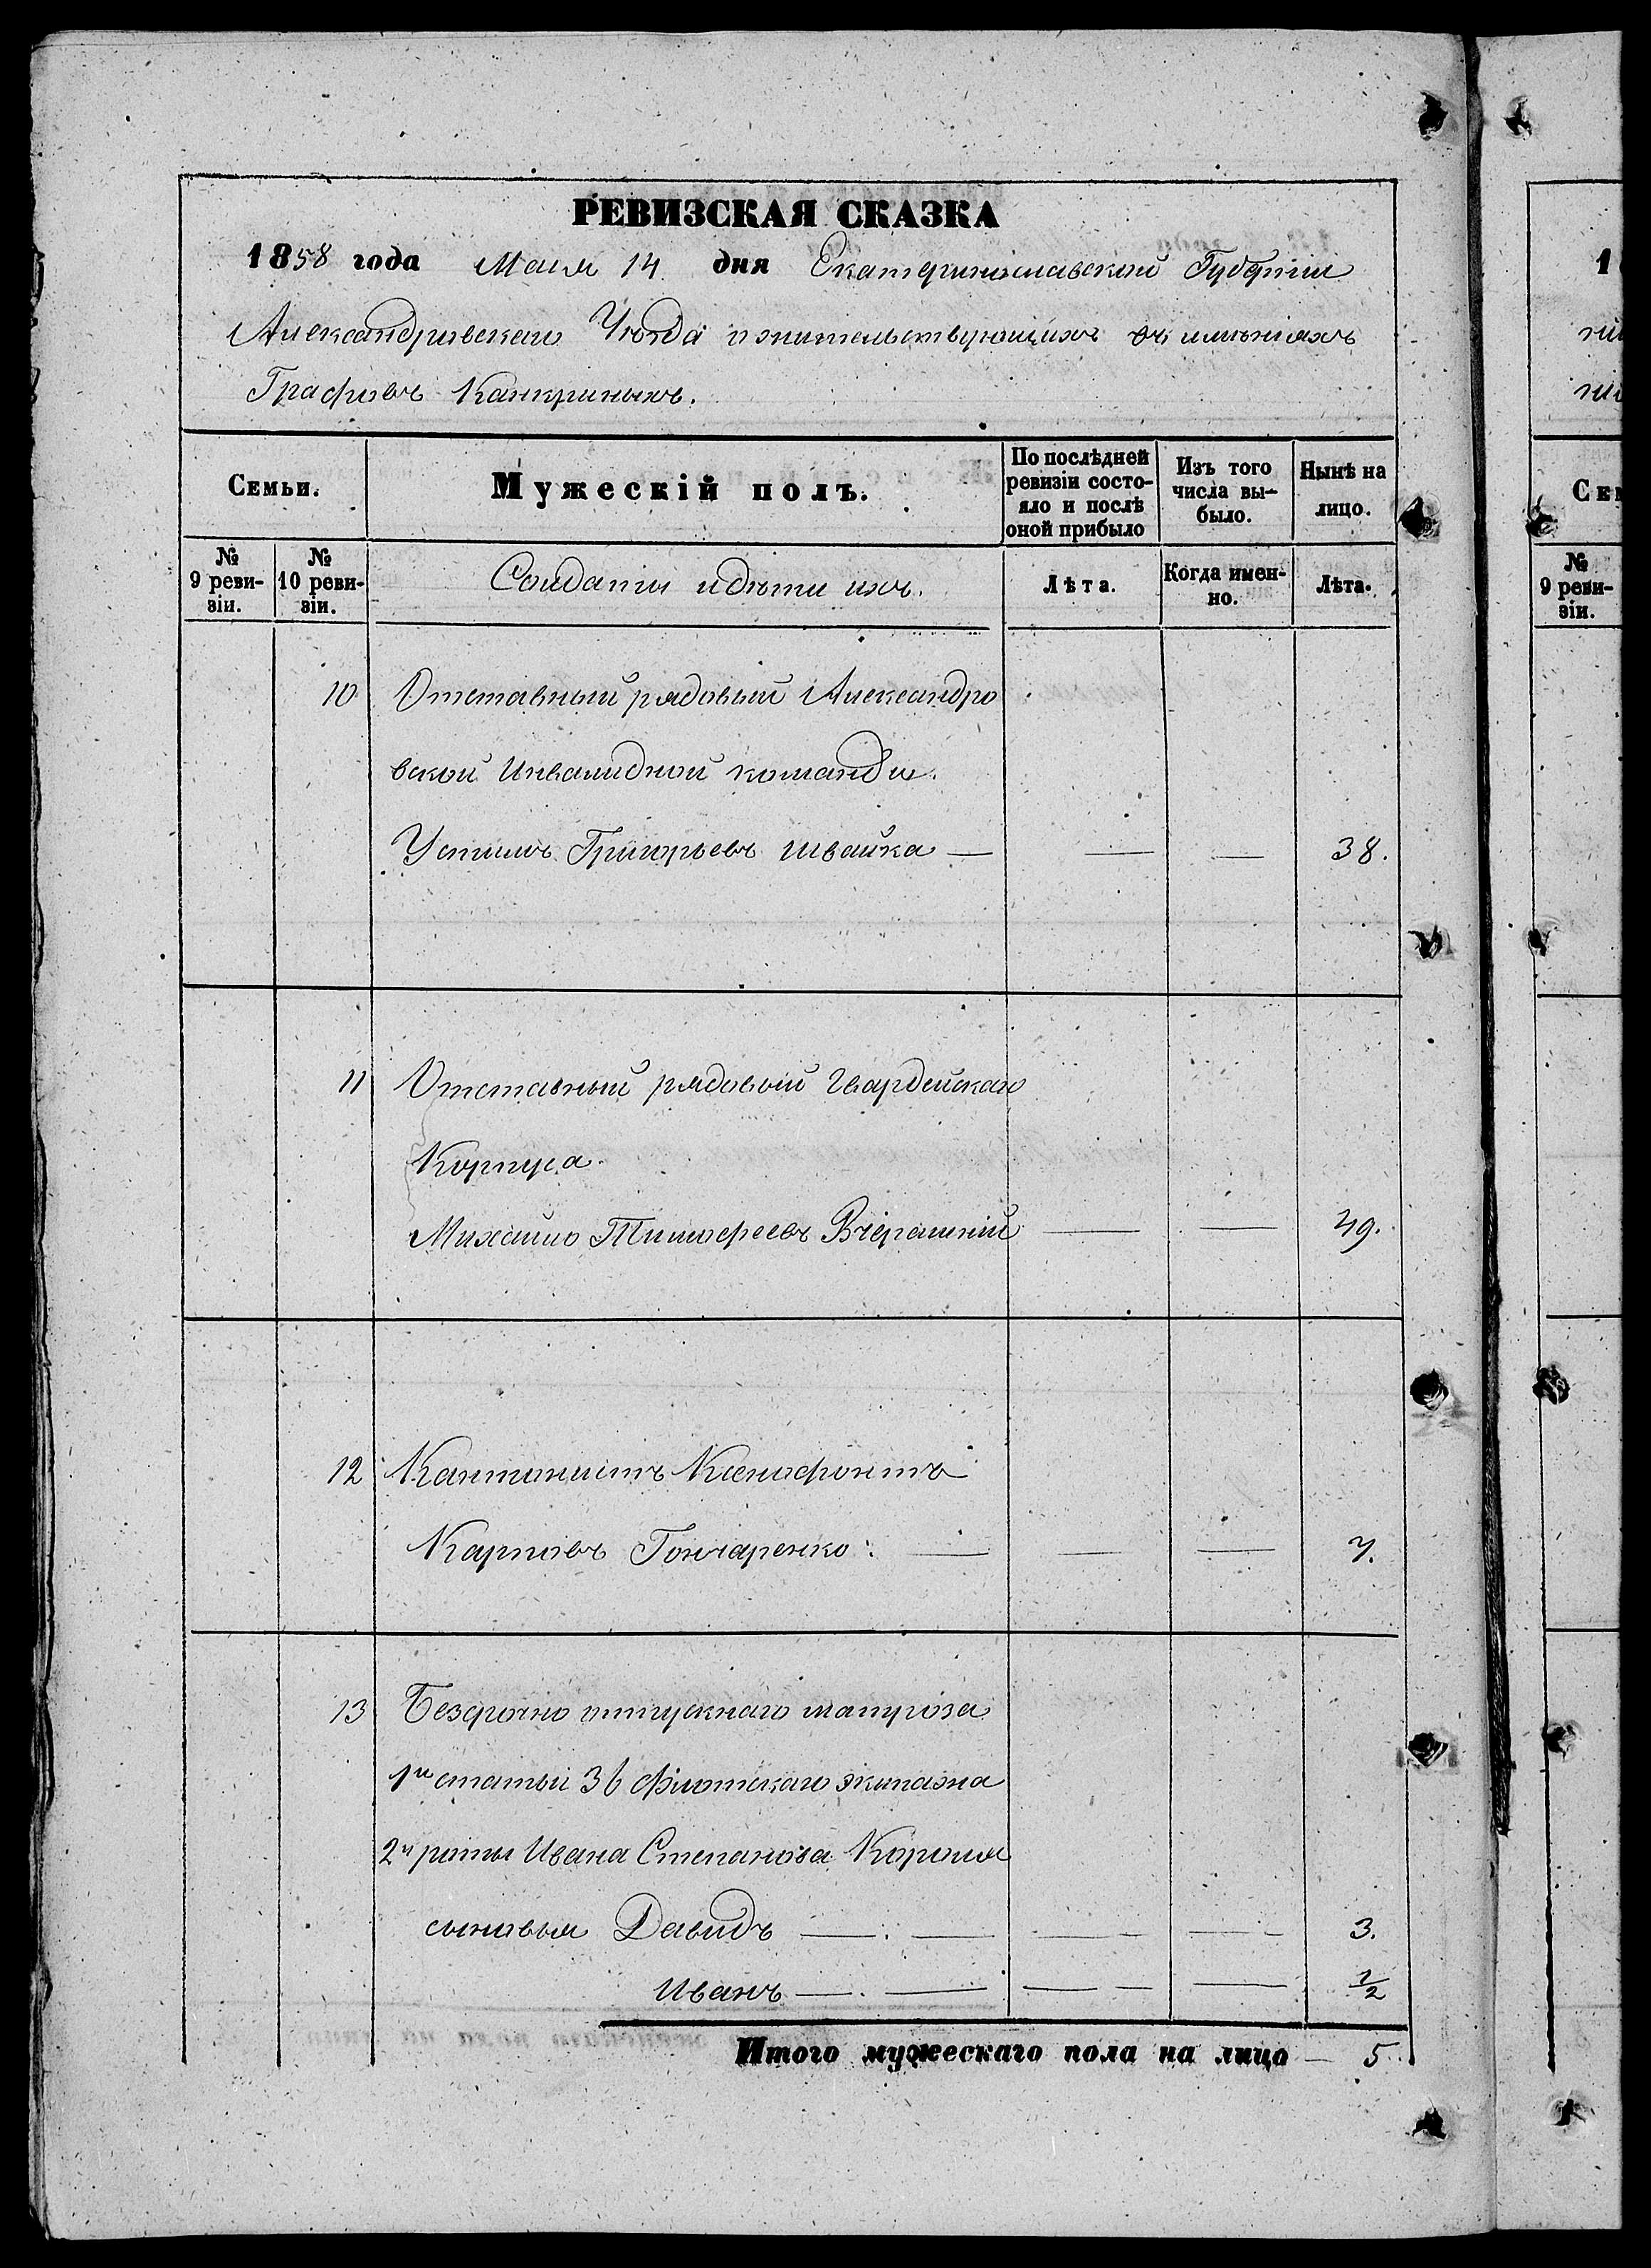 РЕВИЗСКАЯ СКАЗКА
1858 года Маія 14 дня Екатеринославской Губерніи
Александровскаго Уѣзда о жительствующихъ въ имѣніяхъ
Графовъ Канкриныхъ.
Семьи.
Мужескій полъ.
По послѣдней ревизіи состо-
яло и послѣ
оной прибыло
Изъ того
числа вы-
было.
Нынѣ на
лицо.
№
9 реви-
зіи.
№
10 реви-
зіи.
Солдаты и дѣти ихъ.
Лѣта.
Когда имен-
но.
Лѣта.
10 Отставный рядовый Александро
вской Инвалидной команды.
Устимъ Григорьевъ Швайка — — — 38.
11 Отставный рядовый Гвардейскаго
Корпуса.
Михайло Тимофеевъ Вчерашній — — 49.
12 Кантонистъ Ксенофонтъ
Карповъ Гончаренко. — — — 7.
13 Безсрочно отпускнаго матроза
1й статьи 36 флотскаго экипажа
2й роты Ивана Степанова Короля
сыновья Давидъ — — — — 3.
Иванъ — — — — 1/2
Итого мужескаго пола на лицо — 5.
1
Сем
№
9 реви-
зіи.